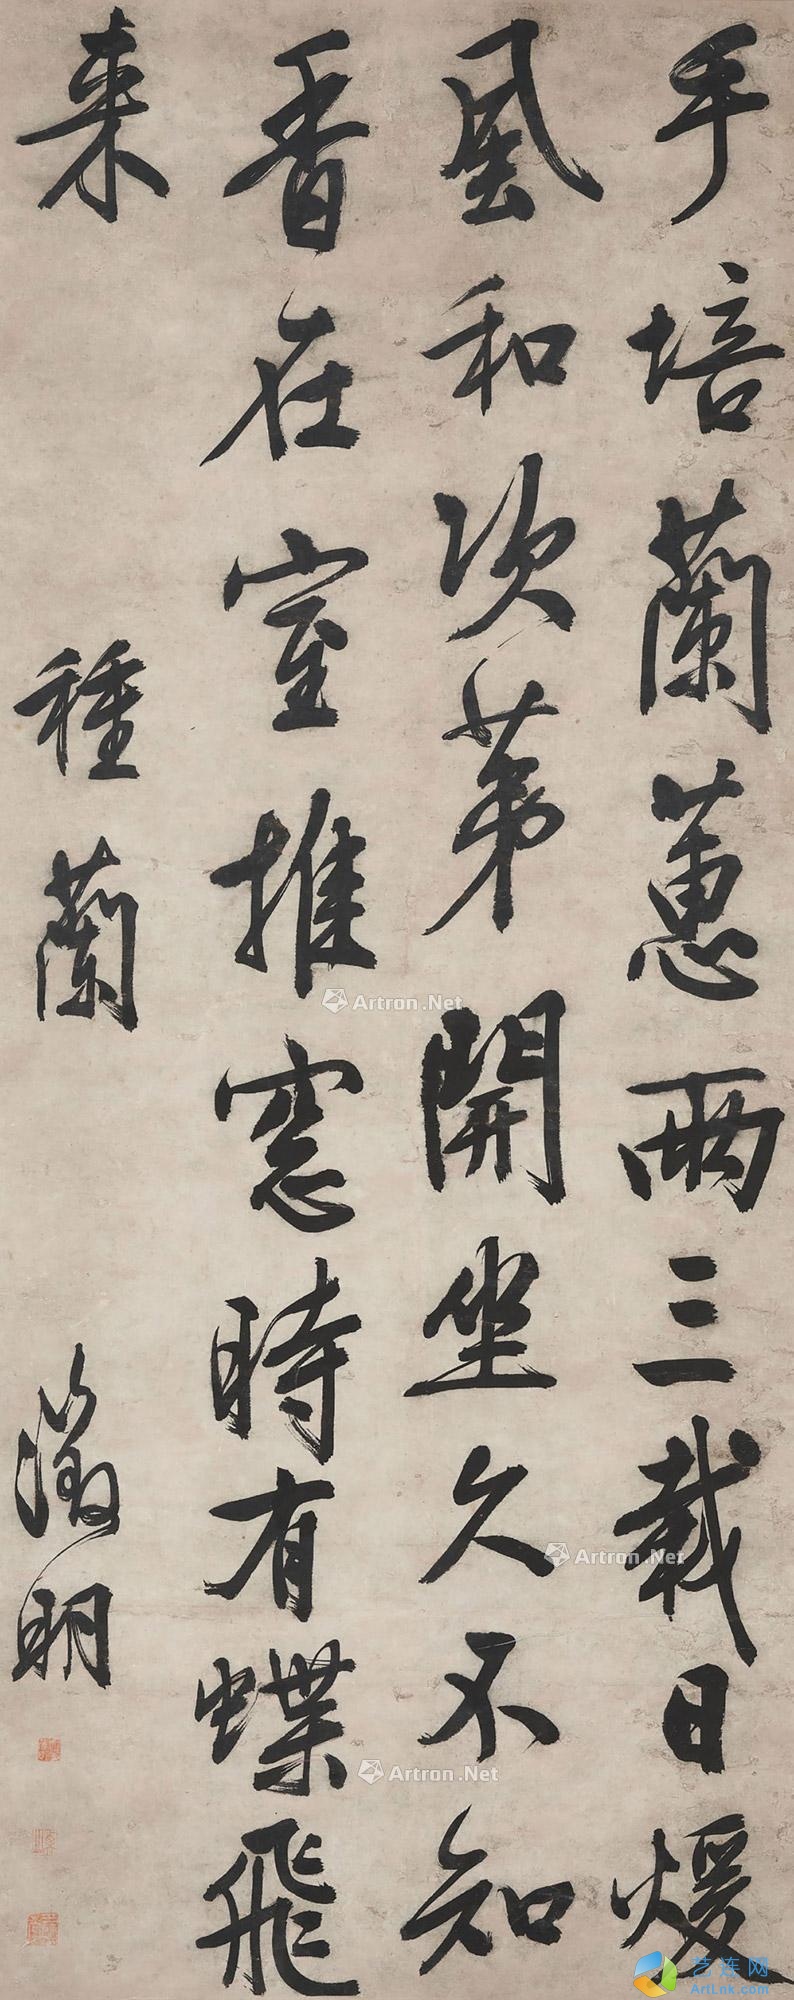 手培蘭蕙兩三載日煖
風和次苐開坐久不知
香在室推窓時有蝶飛
来
種蘭
徵明
Artron.Net
Artron.Net
Artron.Net
艺连网
ArtLnk.com